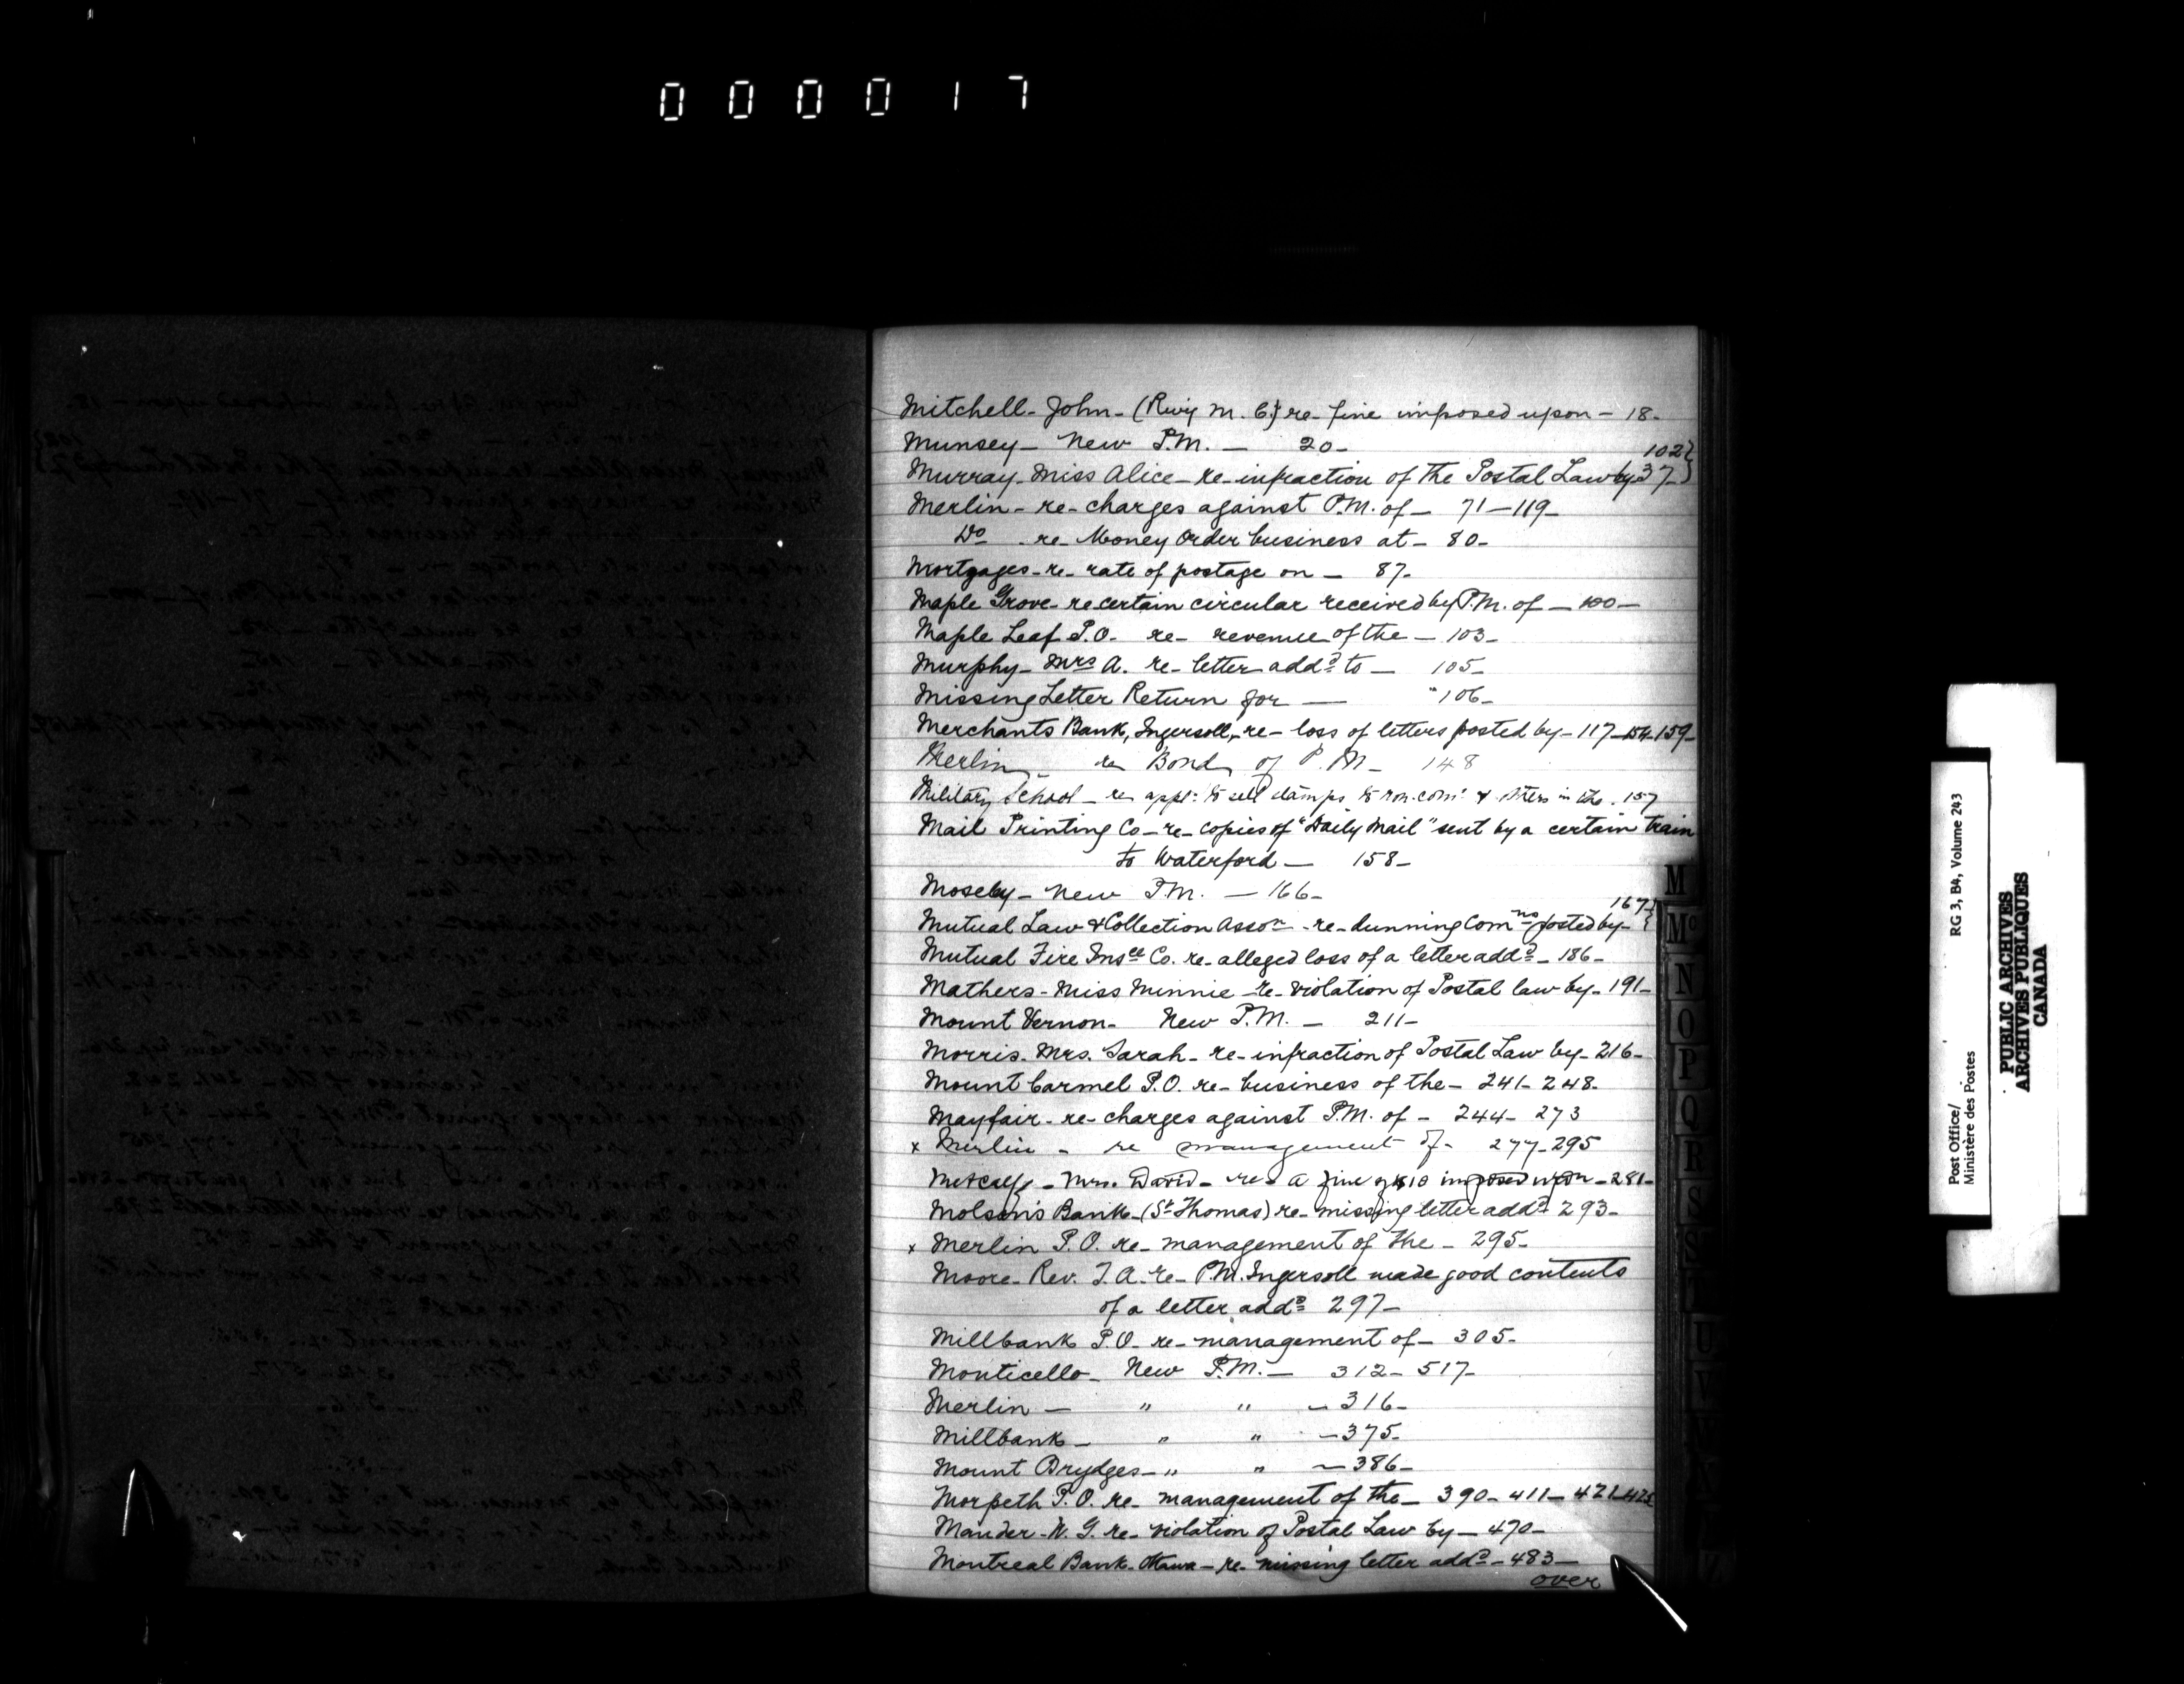 000017
Mitchell - John - (Rwy M. C.) re - fine imposed upon - 18 -
Munsey - New P.M. - 20 -
102
Murray - Miss Alice - re - infraction of the Postal Law by 37 -
Merlin - re - charges against P.M. of - 71 - 119 -
Do - re - Money Order business at - 80 -
Mortgages - re - rate of postage on - 87 -
Maple Grove - re certain circular received by P.M. of - 100 -
Maple Leaf P.O. re - revenue of the - 103 -
Murphy - Mrs A. re - letter addd to - 105 -
Missing Letter Return for - " 106 -
Merchants Bank, Ingersoll, - re - loss of letters posted by - 117 - 154 - 159 -
Merlin - re Bond of P.M - 148
Military School - re appl: to sell stamps to non.com: & in the . 157
Mail Printing Co - re - copies of "Daily Mail" sent by a certain train
to Waterford - 158 -
Moseby - New P.M. - 166 -
167
Mutual Law & Collection Asson - re - dunning Comns posted by -
Mutual Fire Insce Co. re - alleged loss of a letter addd - 186 -
Mathers - Miss Minnie - re - violation of Postal law by - 191 -
Mount Vernon - New P.M. - 211 -
Morris - Mrs. Sarah - re - infraction of Postal Law by - 216 -
Mount Carmel P.O. re - business of the - 241 - 248 -
Mayfair - re - charges against P.M. of - 244 - 273
x Merlin - re management of - 277 - 295
Metcalfe - Mrs. David - re - a fine of $10 imposed upon - 281 -
Molson's Bank - (St Thomas) re - missing letter addd - 293 -
x Merlin P.O. re - management of the - 295 -
Moore - Rev. T. A. re - P.M. Ingersoll made good contents
of a letter addd 297 -
Millbank P.O. re - management of - 305 -
Monticello - New P.M. - 312 - 517 -
Merlin - " " - 316 -
Millbank - " " - 375 -
Mount Brydges - " " - 386 -
Morpeth P.O. re - management of the - 390 - 411 - 421 - 425
Mander - W. G. re - violation of Postal Law by - 470 -
Montreal Bank - Ottawa - re - missing letter addd - 483 -
over
M
Mc
N
O
P
Q
R
S
U
V
Z
Post Office/
Ministère des Postes
RG 3, B4, Volume 243
PUBLIC ARCHIVES
ARCHIVES PUBLIQUES
CANADA